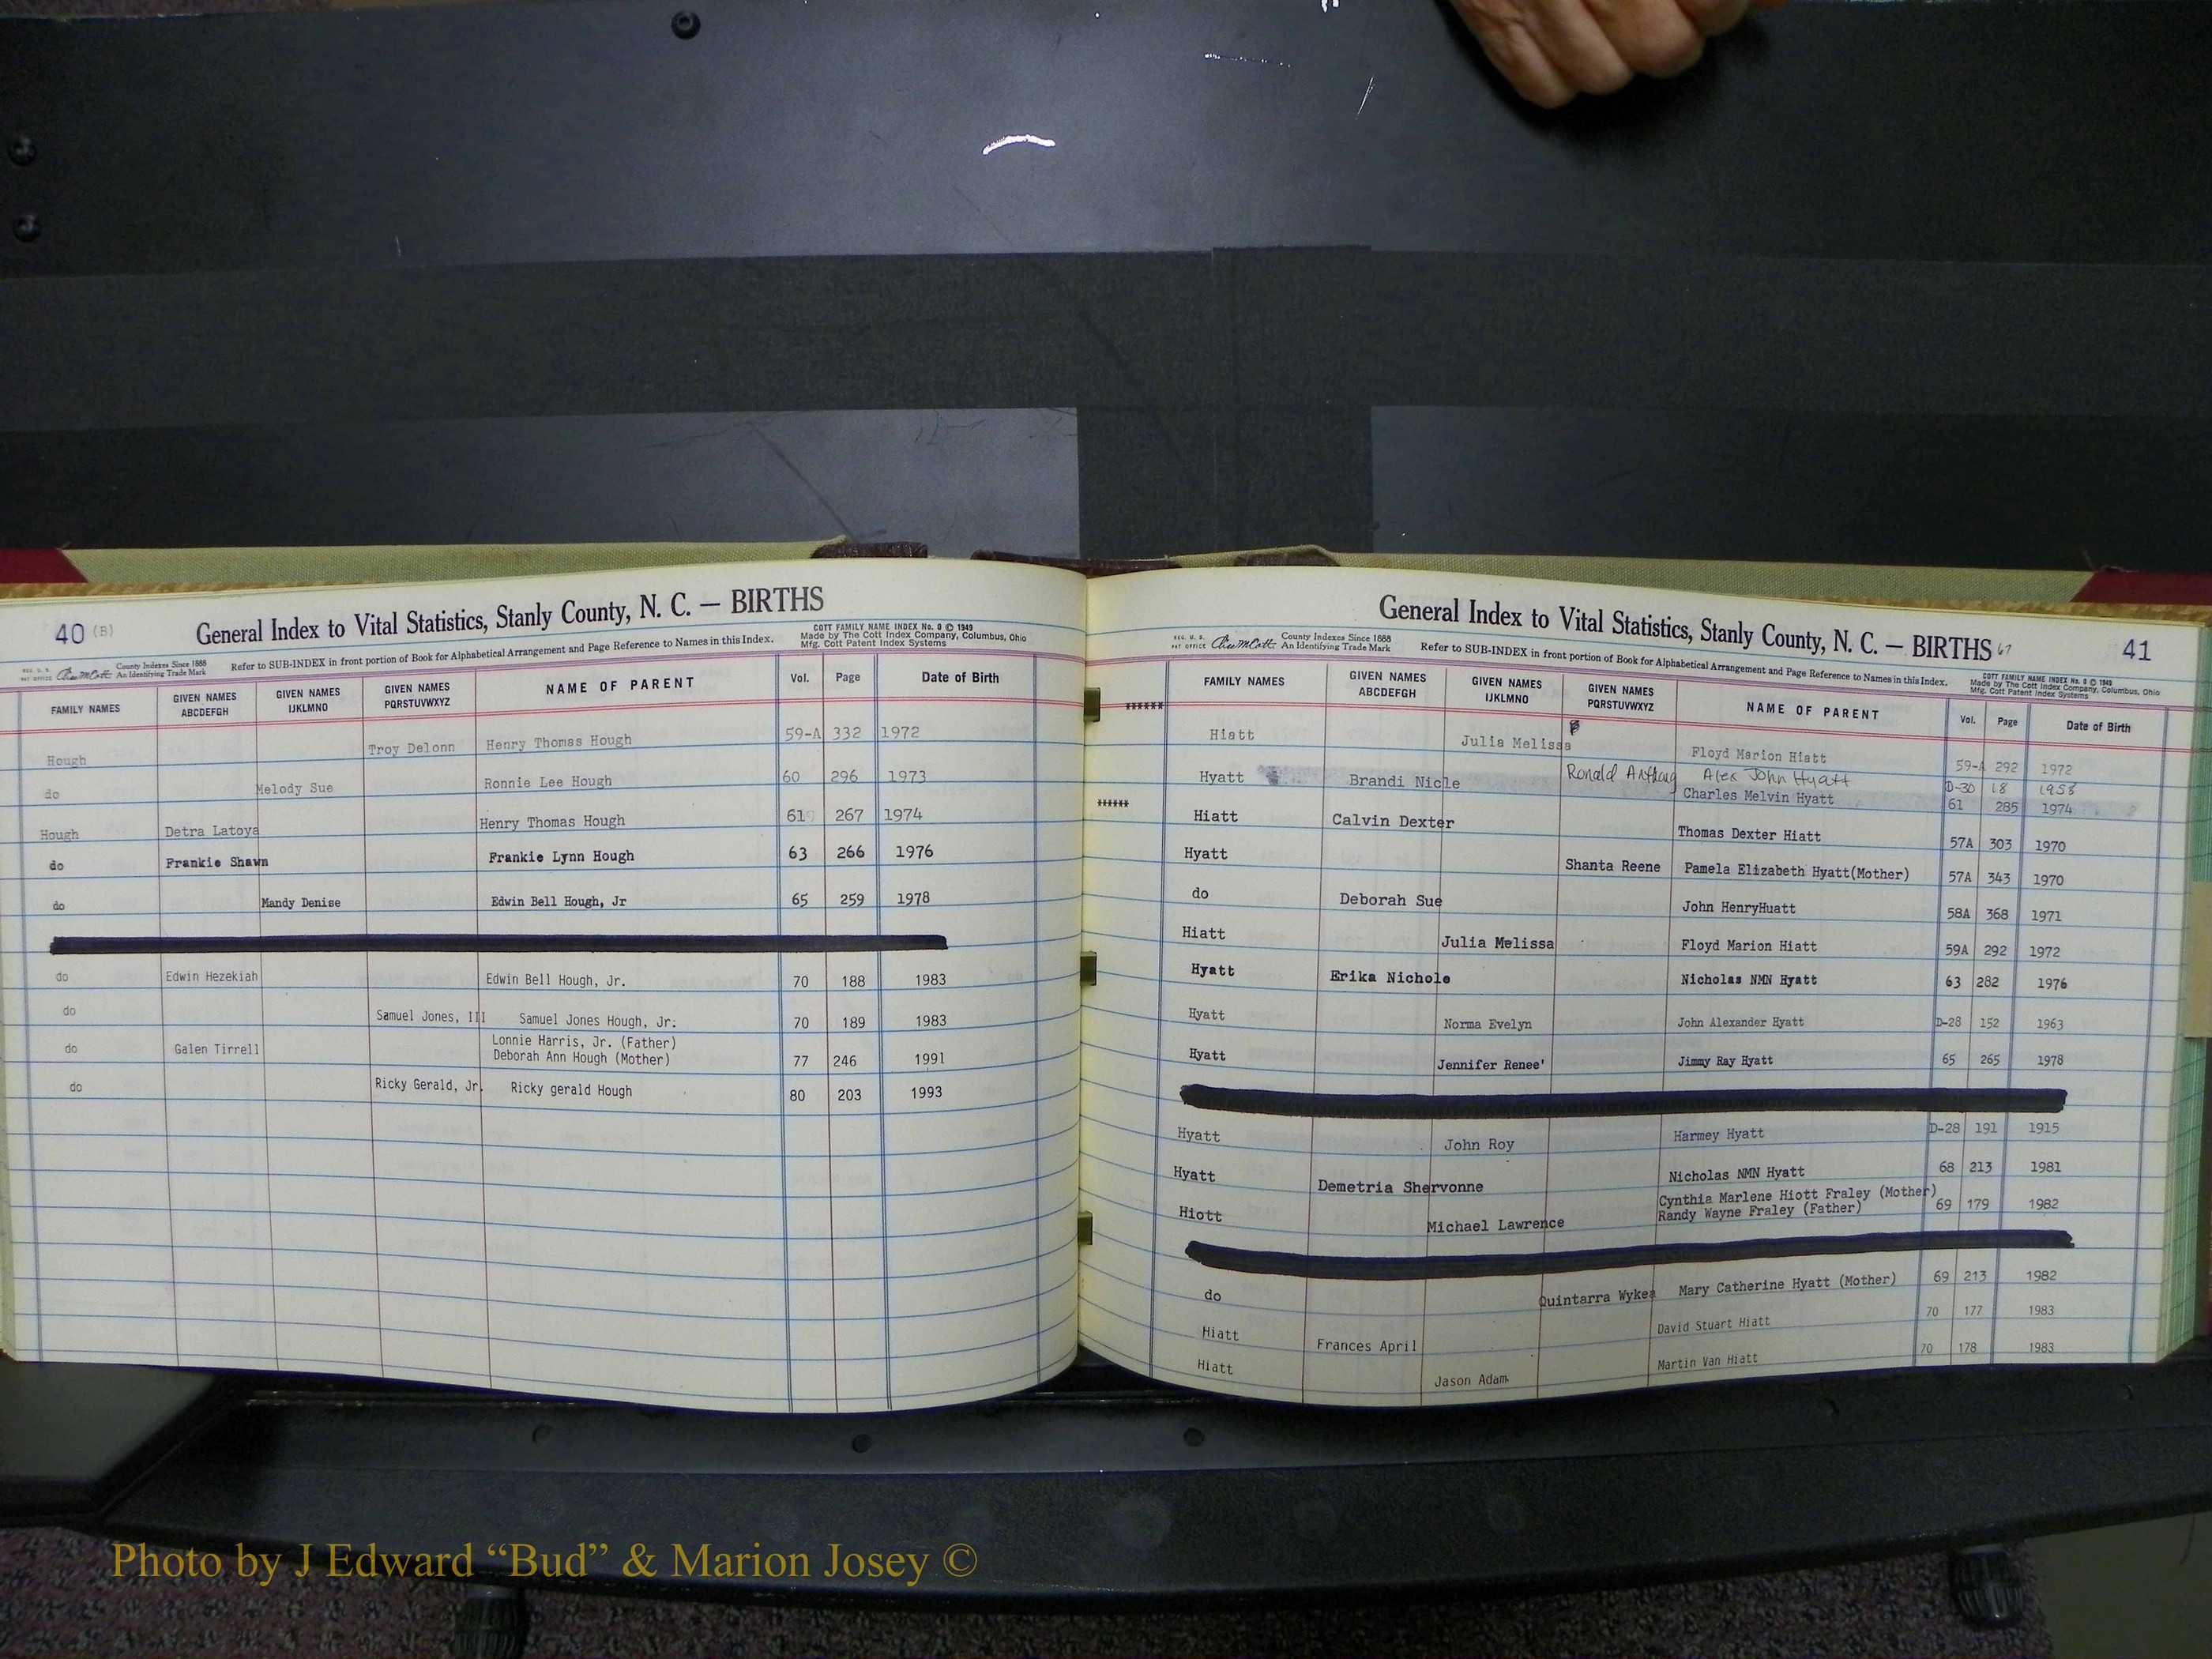 40 (B)
General Index to Vital Statistics, Stanly County, N. C. — BIRTHS
COTT FAMILY NAME INDEX No. 0 © 1949
Made by The Cott Index Company, Columbus, Ohio
Mfg. Cott Patent Index Systems
County Indexes Since 1888
An Identifying Trade Mark
Refer to SUB-INDEX in front portion of Book for Alphabetical Arrangement and Page Reference to Names in this Index.
FAMILY NAMES GIVEN NAMES ABCDEFGH GIVEN NAMES IJKLMNO GIVEN NAMES PQRSTUVWXYZ NAME OF PARENT Vol. Page Date of Birth
Hough Troy Delonn Henry Thomas Hough 59-A 332 1972
do Melody Sue Ronnie Lee Hough 60 296 1973
Hough Detra Latoya Henry Thomas Hough 61 267 1974
do Frankie Shawn Frankie Lynn Hough 63 266 1976
do Mandy Denise Edwin Bell Hough, Jr 65 259 1978
do Edwin Hezekiah Edwin Bell Hough, Jr. 70 188 1983
do Samuel Jones, III Samuel Jones Hough, Jr. 70 189 1983
Lonnie Harris, Jr. (Father)
do Galen Tirrell Deborah Ann Hough (Mother) 77 246 1991
do Ricky Gerald, Jr. Ricky gerald Hough 80 203 1993
General Index to Vital Statistics, Stanly County, N. C. — BIRTHS 67
41
REG. U. S.
PAT OFFICE
County Indexes Since 1888
An Identifying Trade Mark
Refer to SUB-INDEX in front portion of Book for Alphabetical Arrangement and Page Reference to Names in this Index.
COTT FAMILY NAME INDEX No. 0 © 1949
Made by The Cott Index Company, Columbus, Ohio
Mfg. Cott Patent Index Systems
FAMILY NAMES GIVEN NAMES ABCDEFGH GIVEN NAMES IJKLMNO GIVEN NAMES PQRSTUVWXYZ NAME OF PARENT Vol. Page Date of Birth
******
Hiatt Julia Melissa Floyd Marion Hiatt 59-A 292 1972
Ronald Anthony Alex John Hyatt D-30 18 1958
Hyatt Brandi Nicle Charles Melvin Hyatt 61 285 1974
******
Hiatt Calvin Dexter Thomas Dexter Hiatt 57A 303 1970
Hyatt Shanta Reene Pamela Elizabeth Hyatt(Mother) 57A 343 1970
do Deborah Sue John HenryHuatt 58A 368 1971
Hiatt Julia Melissa Floyd Marion Hiatt 59A 292 1972
Hyatt Erika Nichole Nicholas NMN Hyatt 63 282 1976
Hyatt Norma Evelyn John Alexander Hyatt D-28 152 1963
Hyatt Jennifer Renee' Jimmy Ray Hyatt 65 265 1978
Hyatt John Roy Harmey Hyatt D-28 191 1915
Hyatt Demetria Shervonne Nicholas NMN Hyatt 68 213 1981
Cynthia Marlene Hiott Fraley (Mother)
Hiott Michael Lawrence Randy Wayne Fraley (Father) 69 179 1982
do Quintarra Wykea Mary Catherine Hyatt (Mother) 69 213 1982
Hiatt Frances April David Stuart Hiatt 70 177 1983
Hiatt Jason Adam Martin Van Hiatt 70 178 1983
Photo by J Edward “Bud” & Marion Josey ©